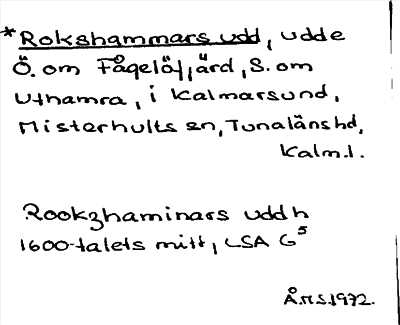 *Rokshammars udd, udde
Ö. om Fågelöfjärd, S. om
Uthamra, i Kalmarsund,
Misterhults sn, Tunaläns hd,
Kalm.l.
Rookzhaminars uddh
1600-talets mitt, LSA G⁵
Å.M.S.1972.